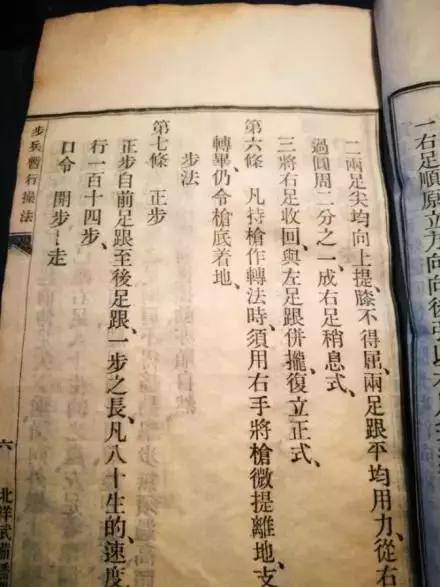 一右足順原立方向向後
二兩足尖均向上提、膝不得屈、兩足跟平均用力、從右
過圓周二分之一、成右足稍息式、
三將右足收回、與左足跟併攏、復立正式、
第六條　凡持槍作轉法時、須用右手將槍微提離地、支
轉畢仍令槍底着地、
步法
第七條　正步
正步自前足跟至後足跟、一步之長、凡八十生的、速度
行一百十四步、
口令　開步－走
步兵暫行操法
六
北洋武備